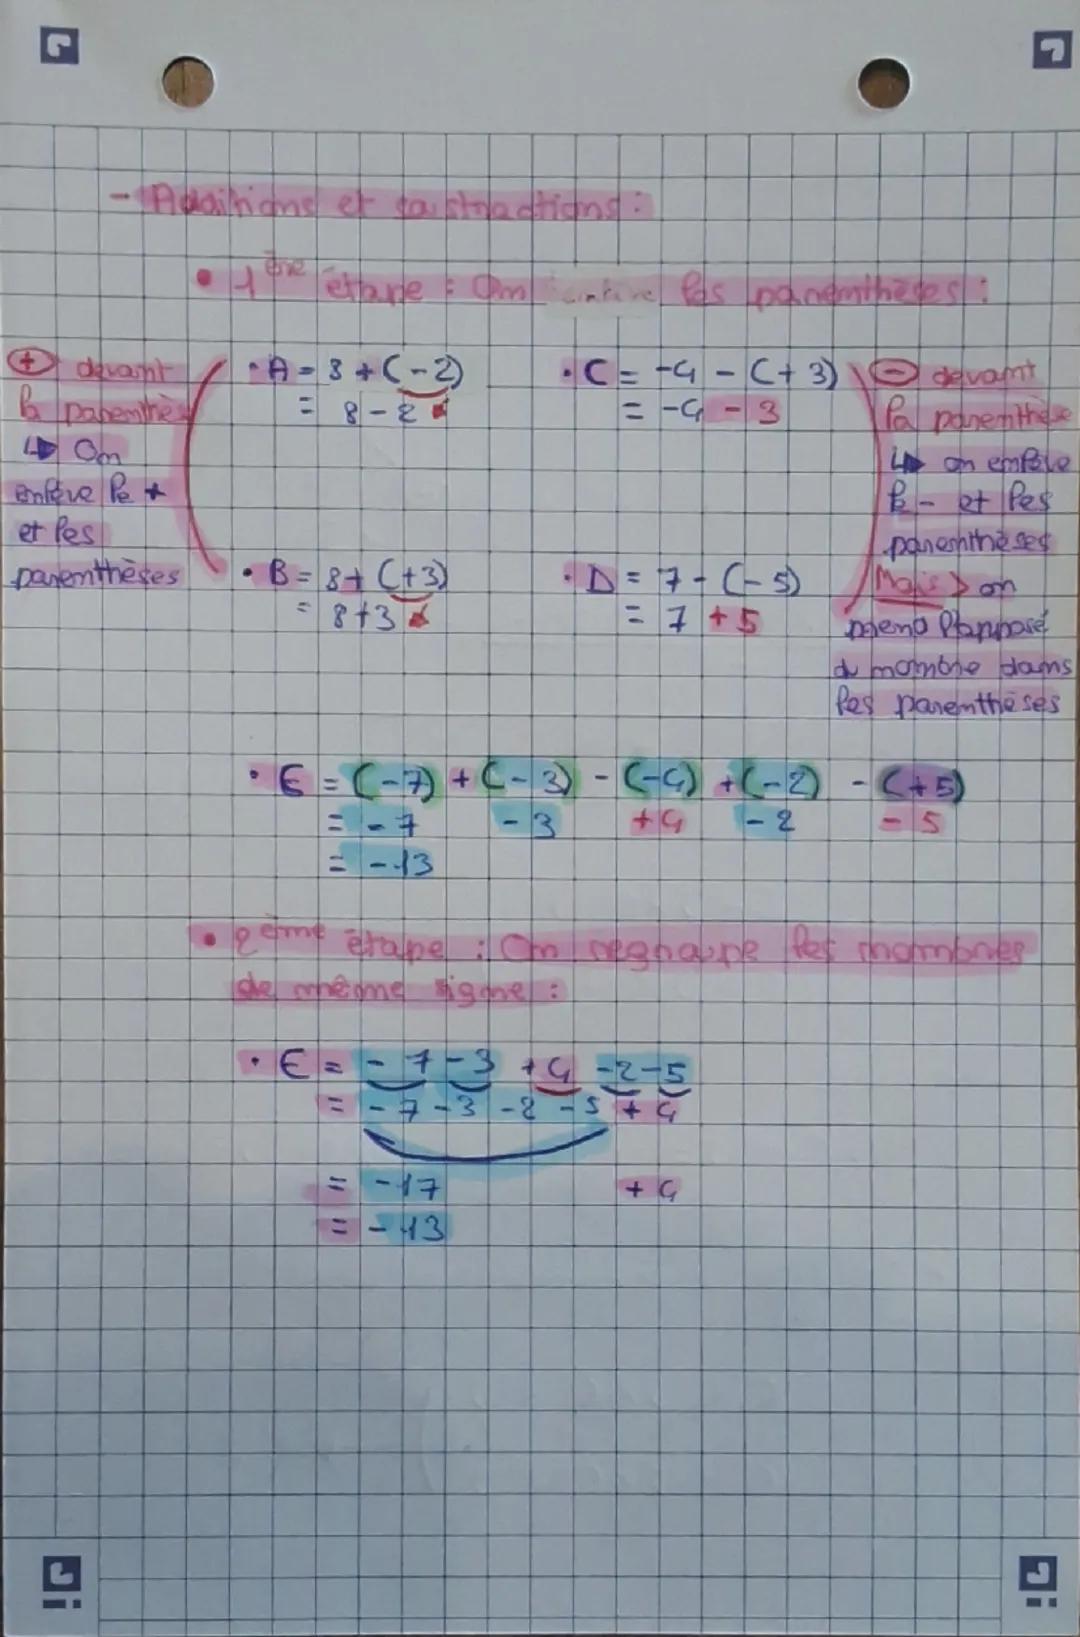 - Additions et soustractions :
• 1ère étape : On enlève les parenthèses :
+ devant
la parenthèse
↳ On
enlève le +
et les
parenthèses
• A = 8 + (-2)
= 8 - 2
• B = 8 + (+3)
= 8 + 3
• C = -4 - (+3)
= -4 - 3
• D = 7 - (-5)
= 7 + 5
- devant
la parenthèse
↳ on enlève
le - et les
parenthèses
Mais > on
prend l'opposé
du nombre dans
les parenthèses
• E = (-7) + (-3) - (-4) + (-2) - (+5)
= -7 -3 +4 -2 -5
= -13
• 2ème étape : On regroupe les nombres
de même signe :
• E = -7 -3 +4 -2 -5
= -7 -3 -2 -5 +4
= -17 +4
= -13